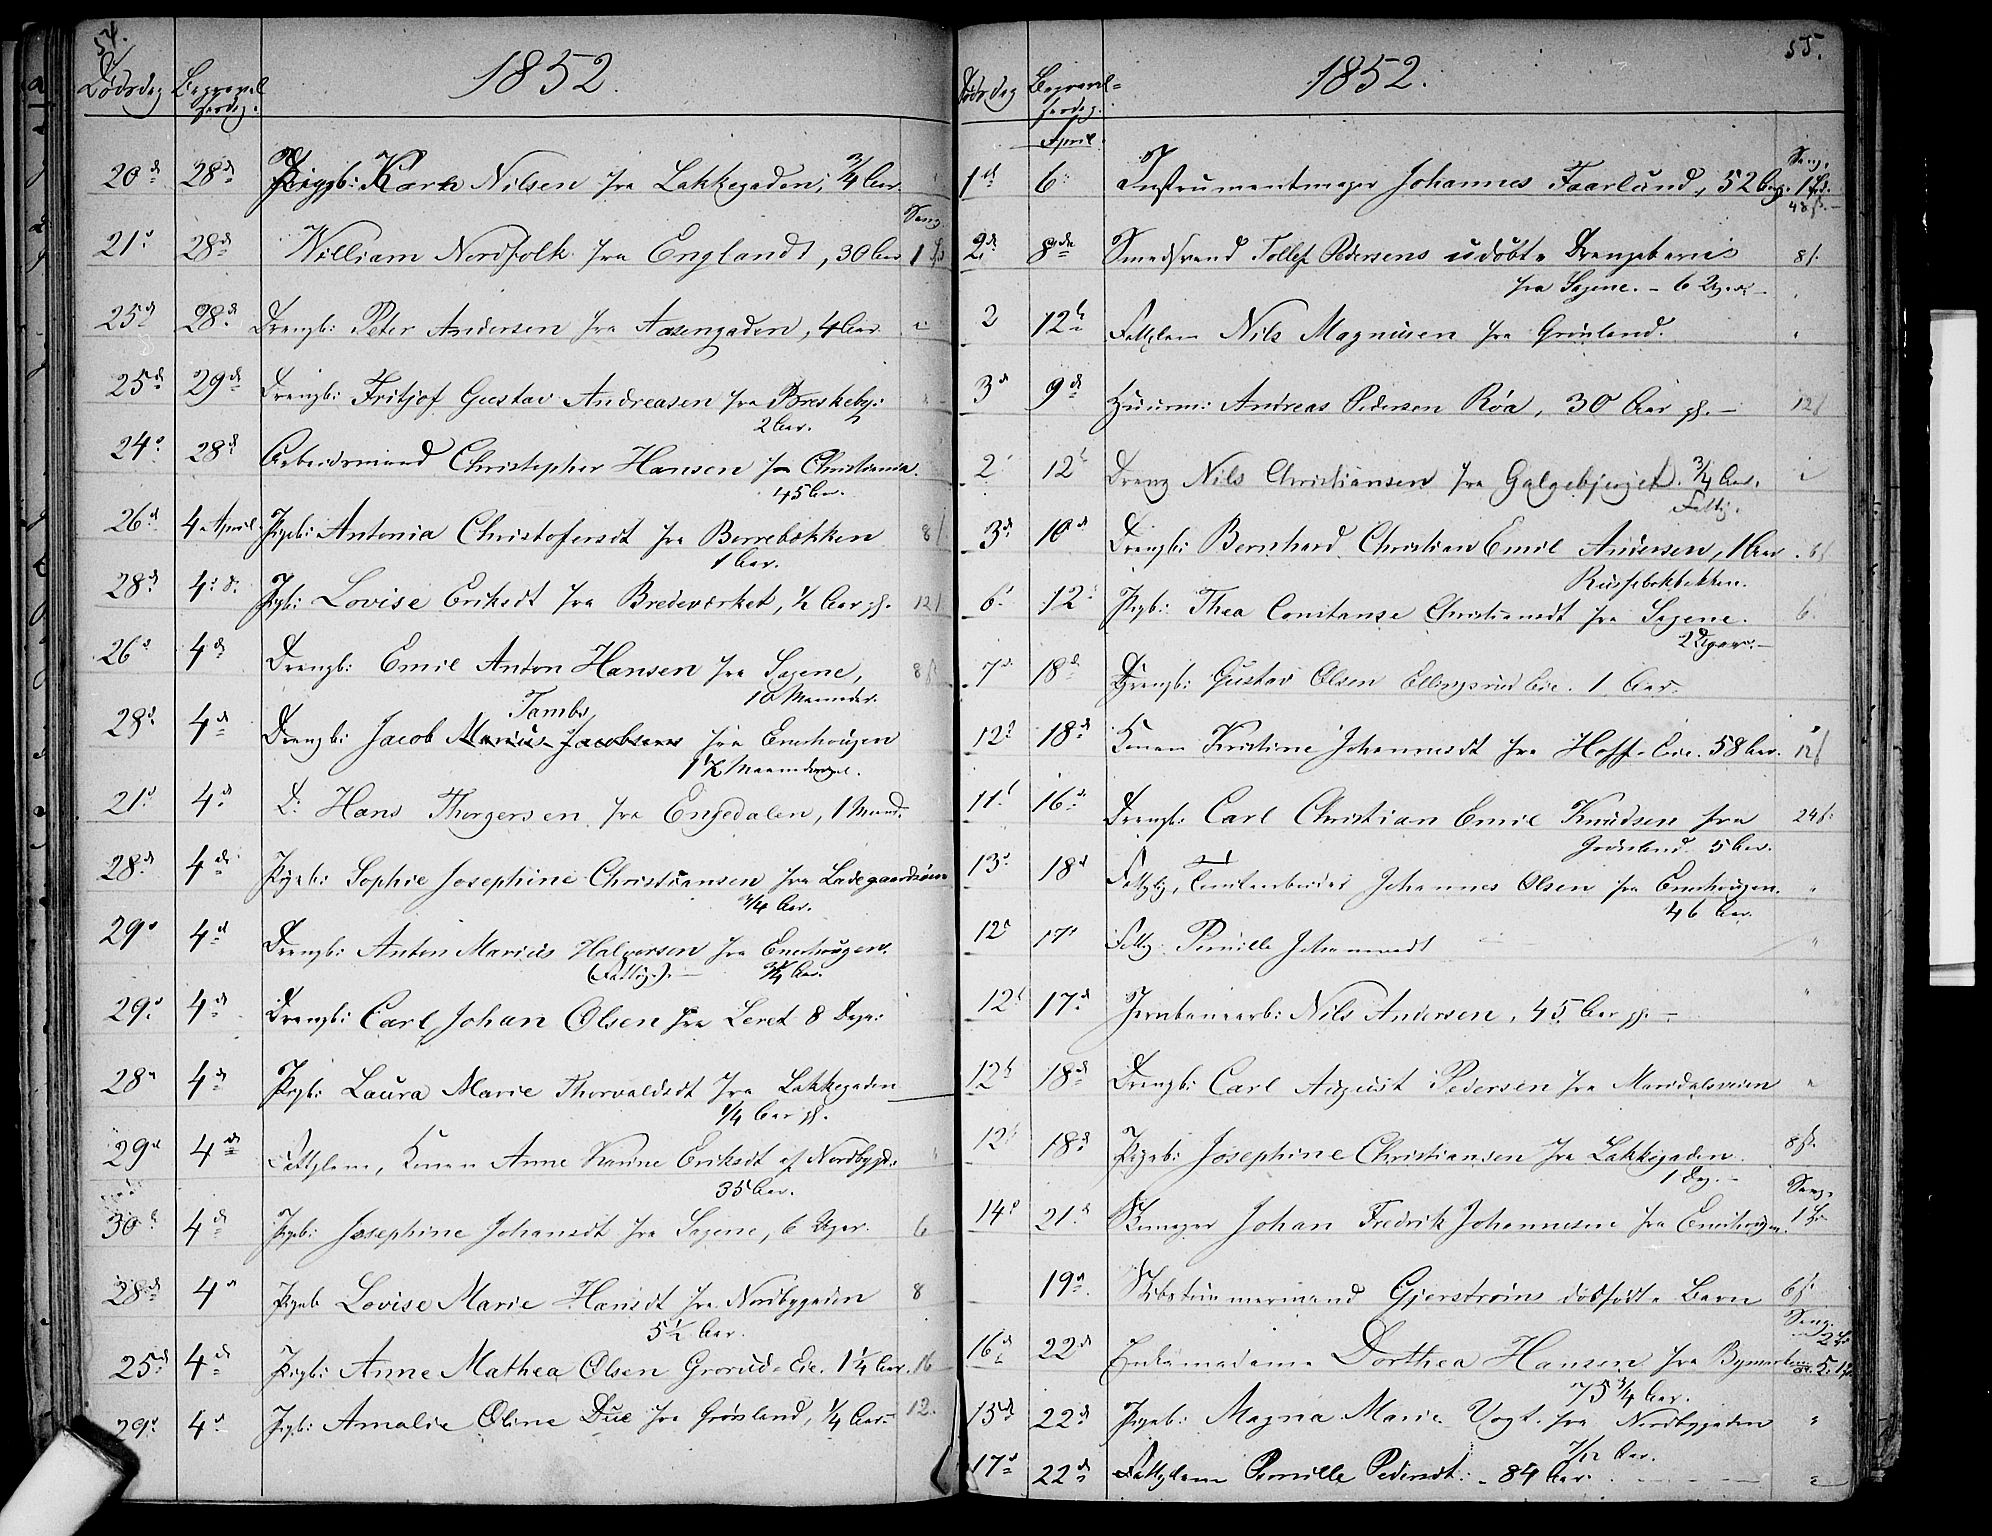 54.
Dødsdag Begravelsesdag. 1852.
20d 28d Pigeb: Karen Nilsen fra Lakkegaden, 3/4 Aar.
Sang.
21d 28d William Nordfolk fra Englandt, 30 Aar 1
25d 28d Drengb: Peter Andersen fra Aasengaden, 4 Aar.
25d 29d Drengb: Fritjof Gustav Andreasen fra Breskeby:
2 Aar.
24d 28d Arbeidsmand Christopher Hansen fra Christiania.
45 Aar.
26d 4. April. Pigeb: Antonia Christofersdt fra Borrebækken 8
1 Aar.
28d 4: d. Pigb: Lovise Eriksdt fra Bredeværket, 1/2 Aar gl. 12
26d 4d Drengb: Emil Anton Hansen fra Sagene, 8
10 Maander.
Tambs
28d 4d Drengb: Jacob Marius Jacobsens fra Enerhougen
1 1/2 Maander gl.
21d 4d D: Hans Thorgersen fra Ensjedalen, 1 Maand.
28d 4d Pigeb: Sophie Josephine Christiansen fra Ladegaardsøen
3/4 Aar.
29d 4d Drengb: Anton Marius Halvorsen fra Enerhougen.
(Fattig.). — 3/4 Aar.
29d 4d Drengb: Carl Johan Olsen fra Leret 8 Dage:
28d 4d Pigb: Laura Marie Thorvaldsdt fra Lakkegaden
1/4 Aar gl.
29d 4d Fattiglem, Konen Anne Karine Eriksdt af Nordbygd:
35 Aar.
30d 4d Pigeb: Josephine Johansdt fra Sagene, 6 Uger. 6
28d 4d Pigeb Lovise Marie Hansdt fra Nordbygaden 8
5 1/2 Aar.
25d 4d Pigb: Anne Mathea Olsen Grorud-Eie. 1 1/4 Aar. 16
29d 4d Pigb: Amalie Oline Due fra Grønland, 1/4 Aar. 12.
55.
Dødsdag Begravelsesdag. 1852.
April.
Sang.
1d 6: Instrumentmager Johannes Faarlund, 52 Aar. 1
48 ß. —
2d 8de Smedsvend Tollef Pedersens udøbte Drengebarn 8
fra Sagene. — 6 Uger —
2 12d Fattiglem Nils Magnusen fra Grønland.
3d 9d Huusm: Andreas Pedersen Røa, 30 Aar gl. — 12
2d 12d Dreng Nils Christiansen fra Galgebjerget. 3/4 Aar.
Fattig.
3d 10d Drengb: Bernhard Christian Emil Andersen, 1 Aar. 6
6d 12d Pigb: Thea Constanse Christiansdt fra Sagene. 6
2 Uger. —
7d 18d Drengb: Gustav Olsen Ellingsrud Eie. 1 Aar.
12d 18d Konen Kristine Johannesdt fra Hoff-Eie. 58 Aar. 12
11d 16d Drengb: Carl Christian Emil Knudsen fra 24
Grønland 5 Aar.
13d 18d Fattig, Tomtearbeider Johannes Olsen fra Enerhougen.
46 Aar.
12d 17d Fattig. Pernille Johannesdt
12d 17d Jernbanearb: Nils Andersen, 45 Aar gl. —
12d 18d Drengb: Carl August Pedersen fra Maridalsveien
12d 18d Pigeb: Josephine Christiansen fra Lakkegaden. 8 ß.
1 Dag. —
Sang.
14d 21d Skomager Johan Fredrik Johannesen fra Enerhougen. 1
19d Skibstømmermand Gjerstrøms dødfødte Barn 6
Sang.
16d 22d Enkemadame Dorthea Hansen fra Bymarken
75 3/4 Aar.
15d 22d Pigeb: Magna Marie Vogt. fra Nordbygaden
7/12 Aar.
17d 22d Fattiglem Pernille Pedersdt. — 84 Aar.